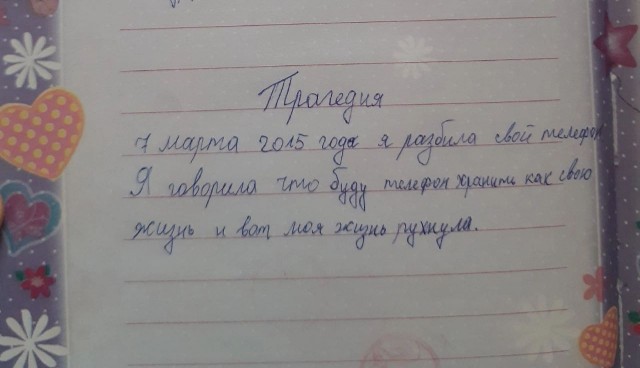 Трагедия
7 марта 2015 года я разбила свой телефон
Я говорила что буду телефон хранить как свою
жизнь и вот моя жизнь рухнула.